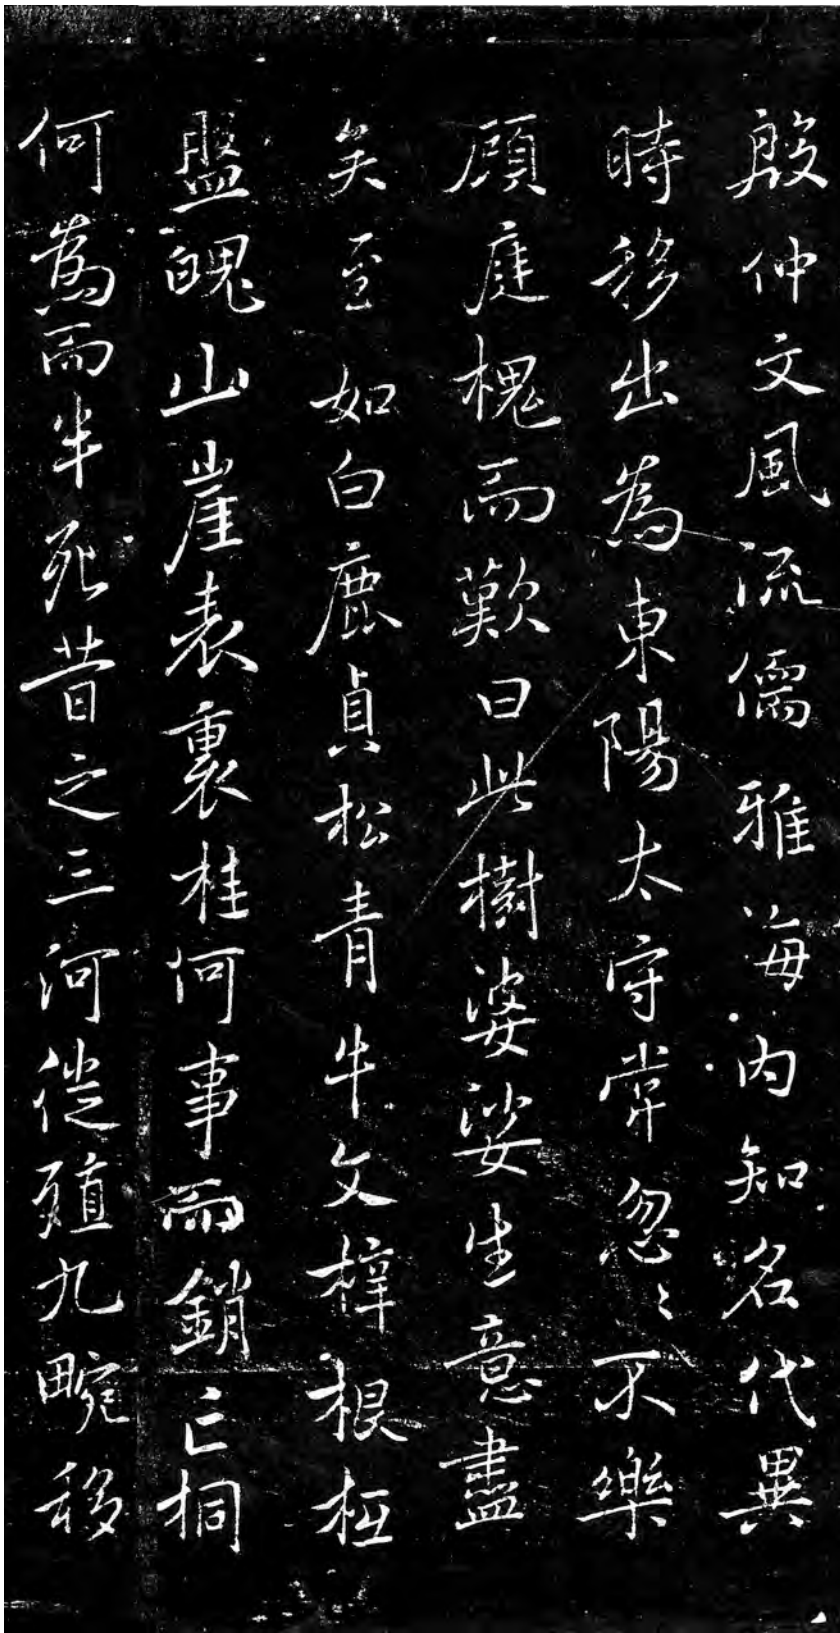 殷仲文風流儒雅海内知名代異
時移出為東陽太守常忽〻不樂
顧庭槐而歎曰此樹婆娑生意盡
矣至如白鹿貞松青牛文梓根柢
盤魄山崖表裏桂何事而銷亡桐
何為而半死昔之三河徙殖九畹移